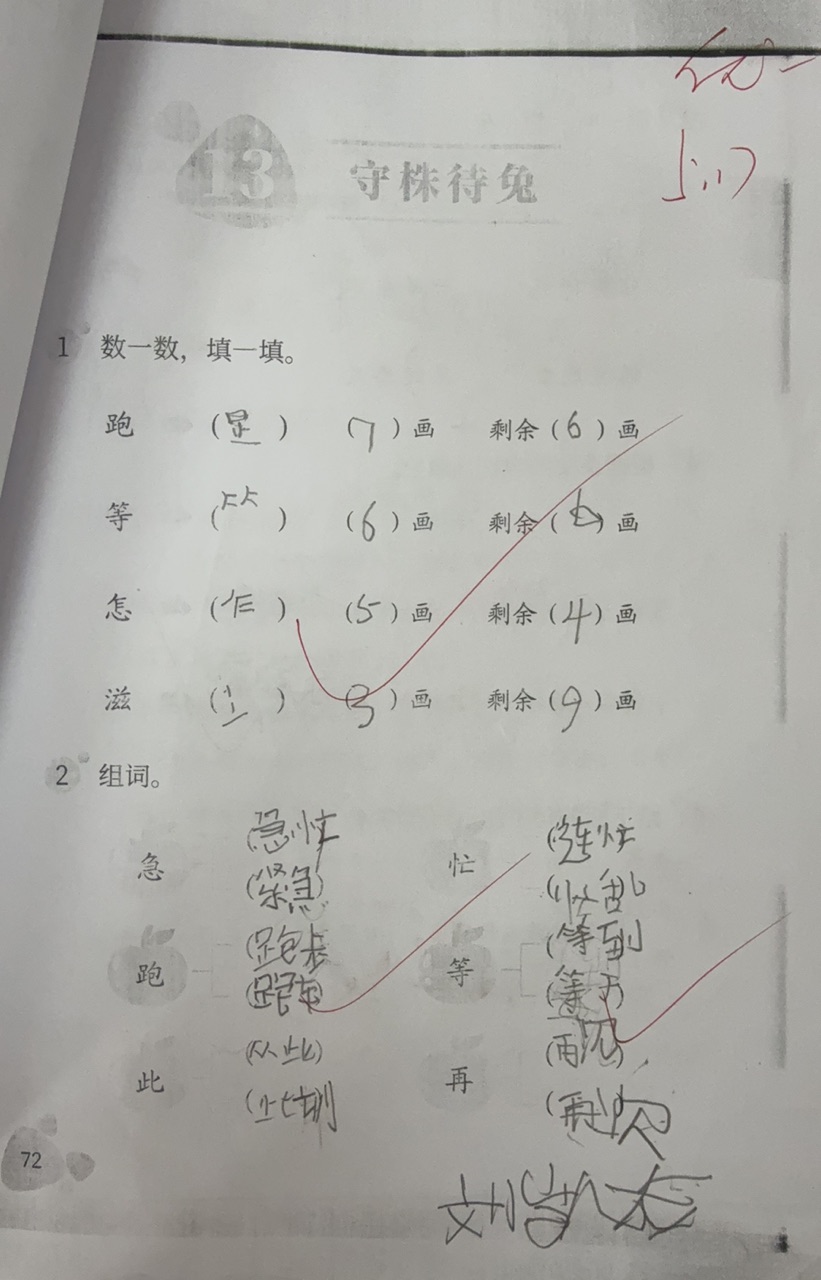 优-
5.17
13 守株待兔
1 数一数，填一填。
跑 (⻊) (7)画 剩余(6)画
等 (⺮) (6)画 剩余( )画
怎 (乍) (5)画 剩余(4)画
滋 (氵) (3)画 剩余(9)画
2 组词。
急 (急忙 忙 (连忙
(紧急) (忙乱)
跑 (跑步 等 (等到
(跑车) (等于)
此 (从此) 再 (再见)
(此刻 (再次
72